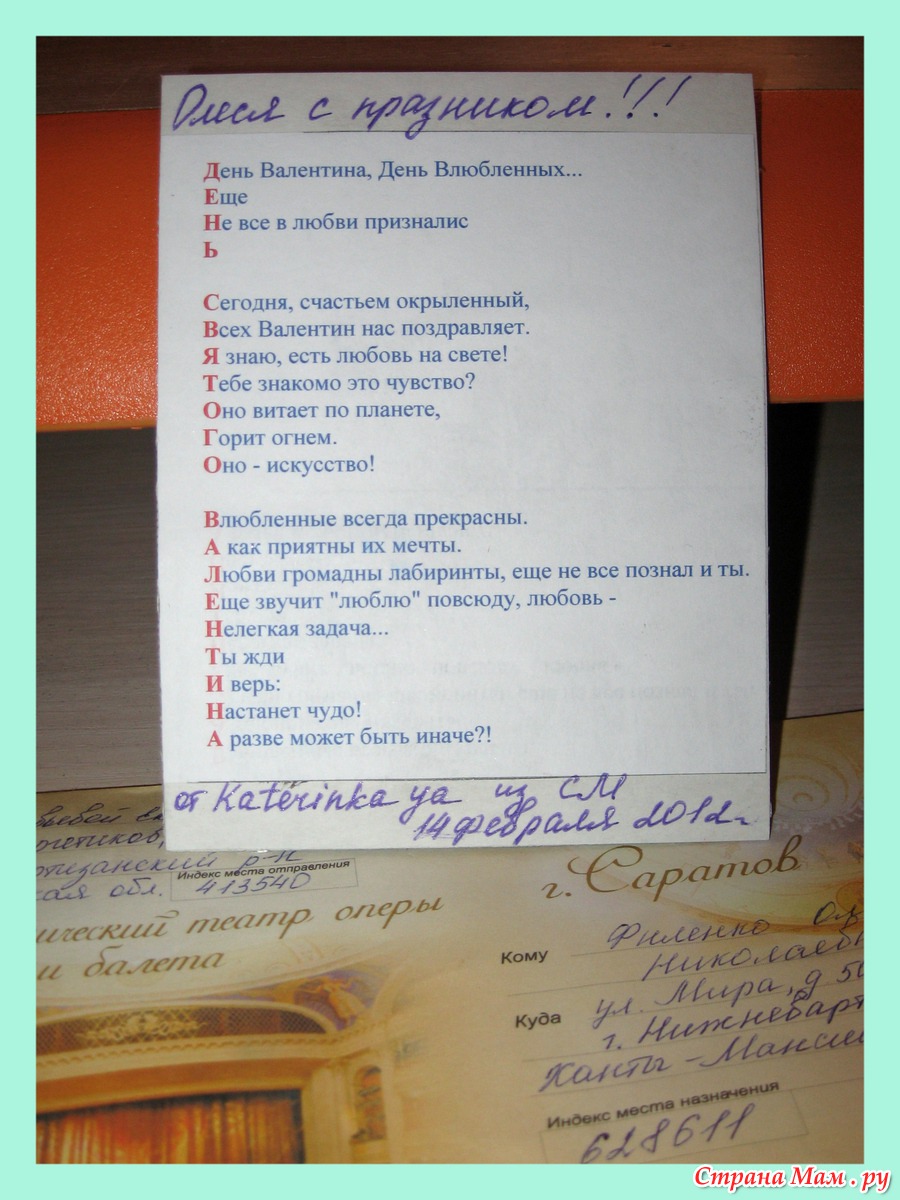 Олеся с празником!!!
День Валентина, День Влюбленных...
Еще
Не все в любви призналис
Ь
Сегодня, счастьем окрыленный,
Всех Валентин нас поздравляет.
Я знаю, есть любовь на свете!
Тебе знакомо это чувство?
Оно витает по планете,
Горит огнем.
Оно - искусство!
Влюбленные всегда прекрасны.
А как приятны их мечты.
Любви громадны лабиринты, еще не все познал и ты.
Еще звучит "люблю" повсюду, любовь -
Нелегкая задача...
Ты жди
И верь:
Настанет чудо!
А разве может быть иначе?!
от Katerinka ya из СМ
14 февраля 2012г
р-н
кая обл.
Индекс места отправления
413540
ический театр оперы
и балета
г. Саратов
Кому Филенко
Николаевн
Куда ул. Мира, д 50
г. Нижневарт
Ханты-Манси
Индекс места назначения
628611
Страна Мам.ру